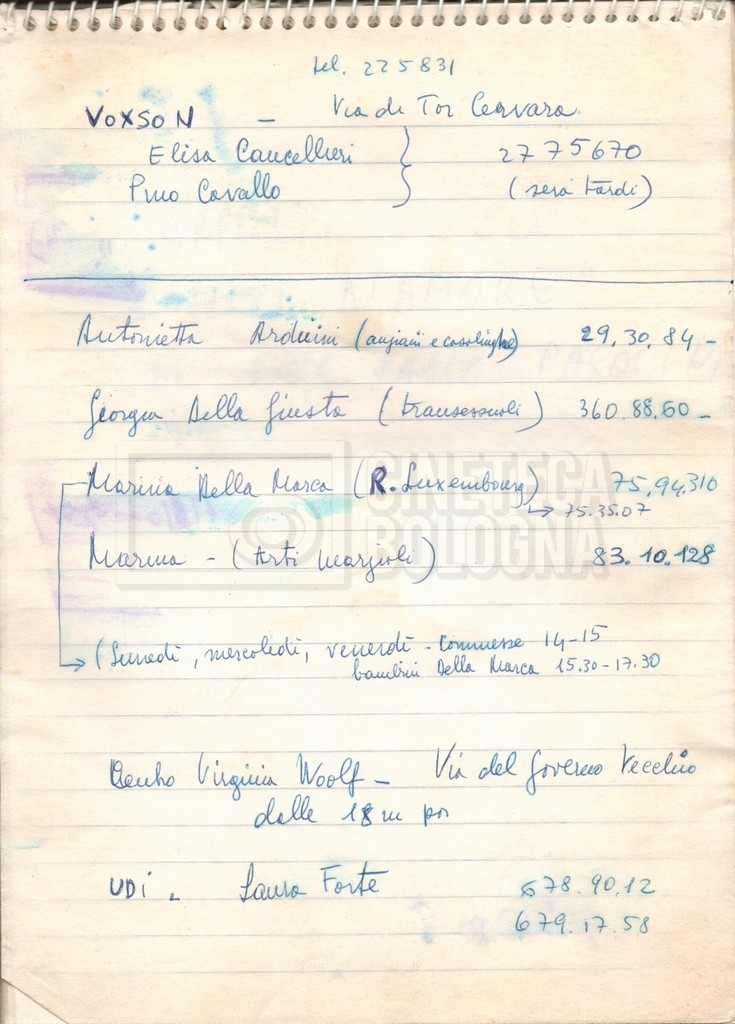 tel. 225831
VOXSON - Via di Tor Cervara
Elisa Cancellieri } 2775670
Pino Cavallo (sera tardi)
Antonietta Arduini (anziani e casalinghe) 29.30.84 -
Giorgia Della Giusta (transessuali) 360.88.60 -
Marina Della Marca (R. Luxembourg) 75.94.310
→ 75.35.07
Marina - (Arti marziali) 83.10.128
→ (Lunedì, mercoledì, venerdì - commesse 14-15
bambini Della Marca 15.30-17.30
Centro Virginia Woolf - Via del Governo Vecchio
dalle 18 in poi
UDI - Laura Forte 678.90.12
679.17.58
CINETECA
BOLOGNA